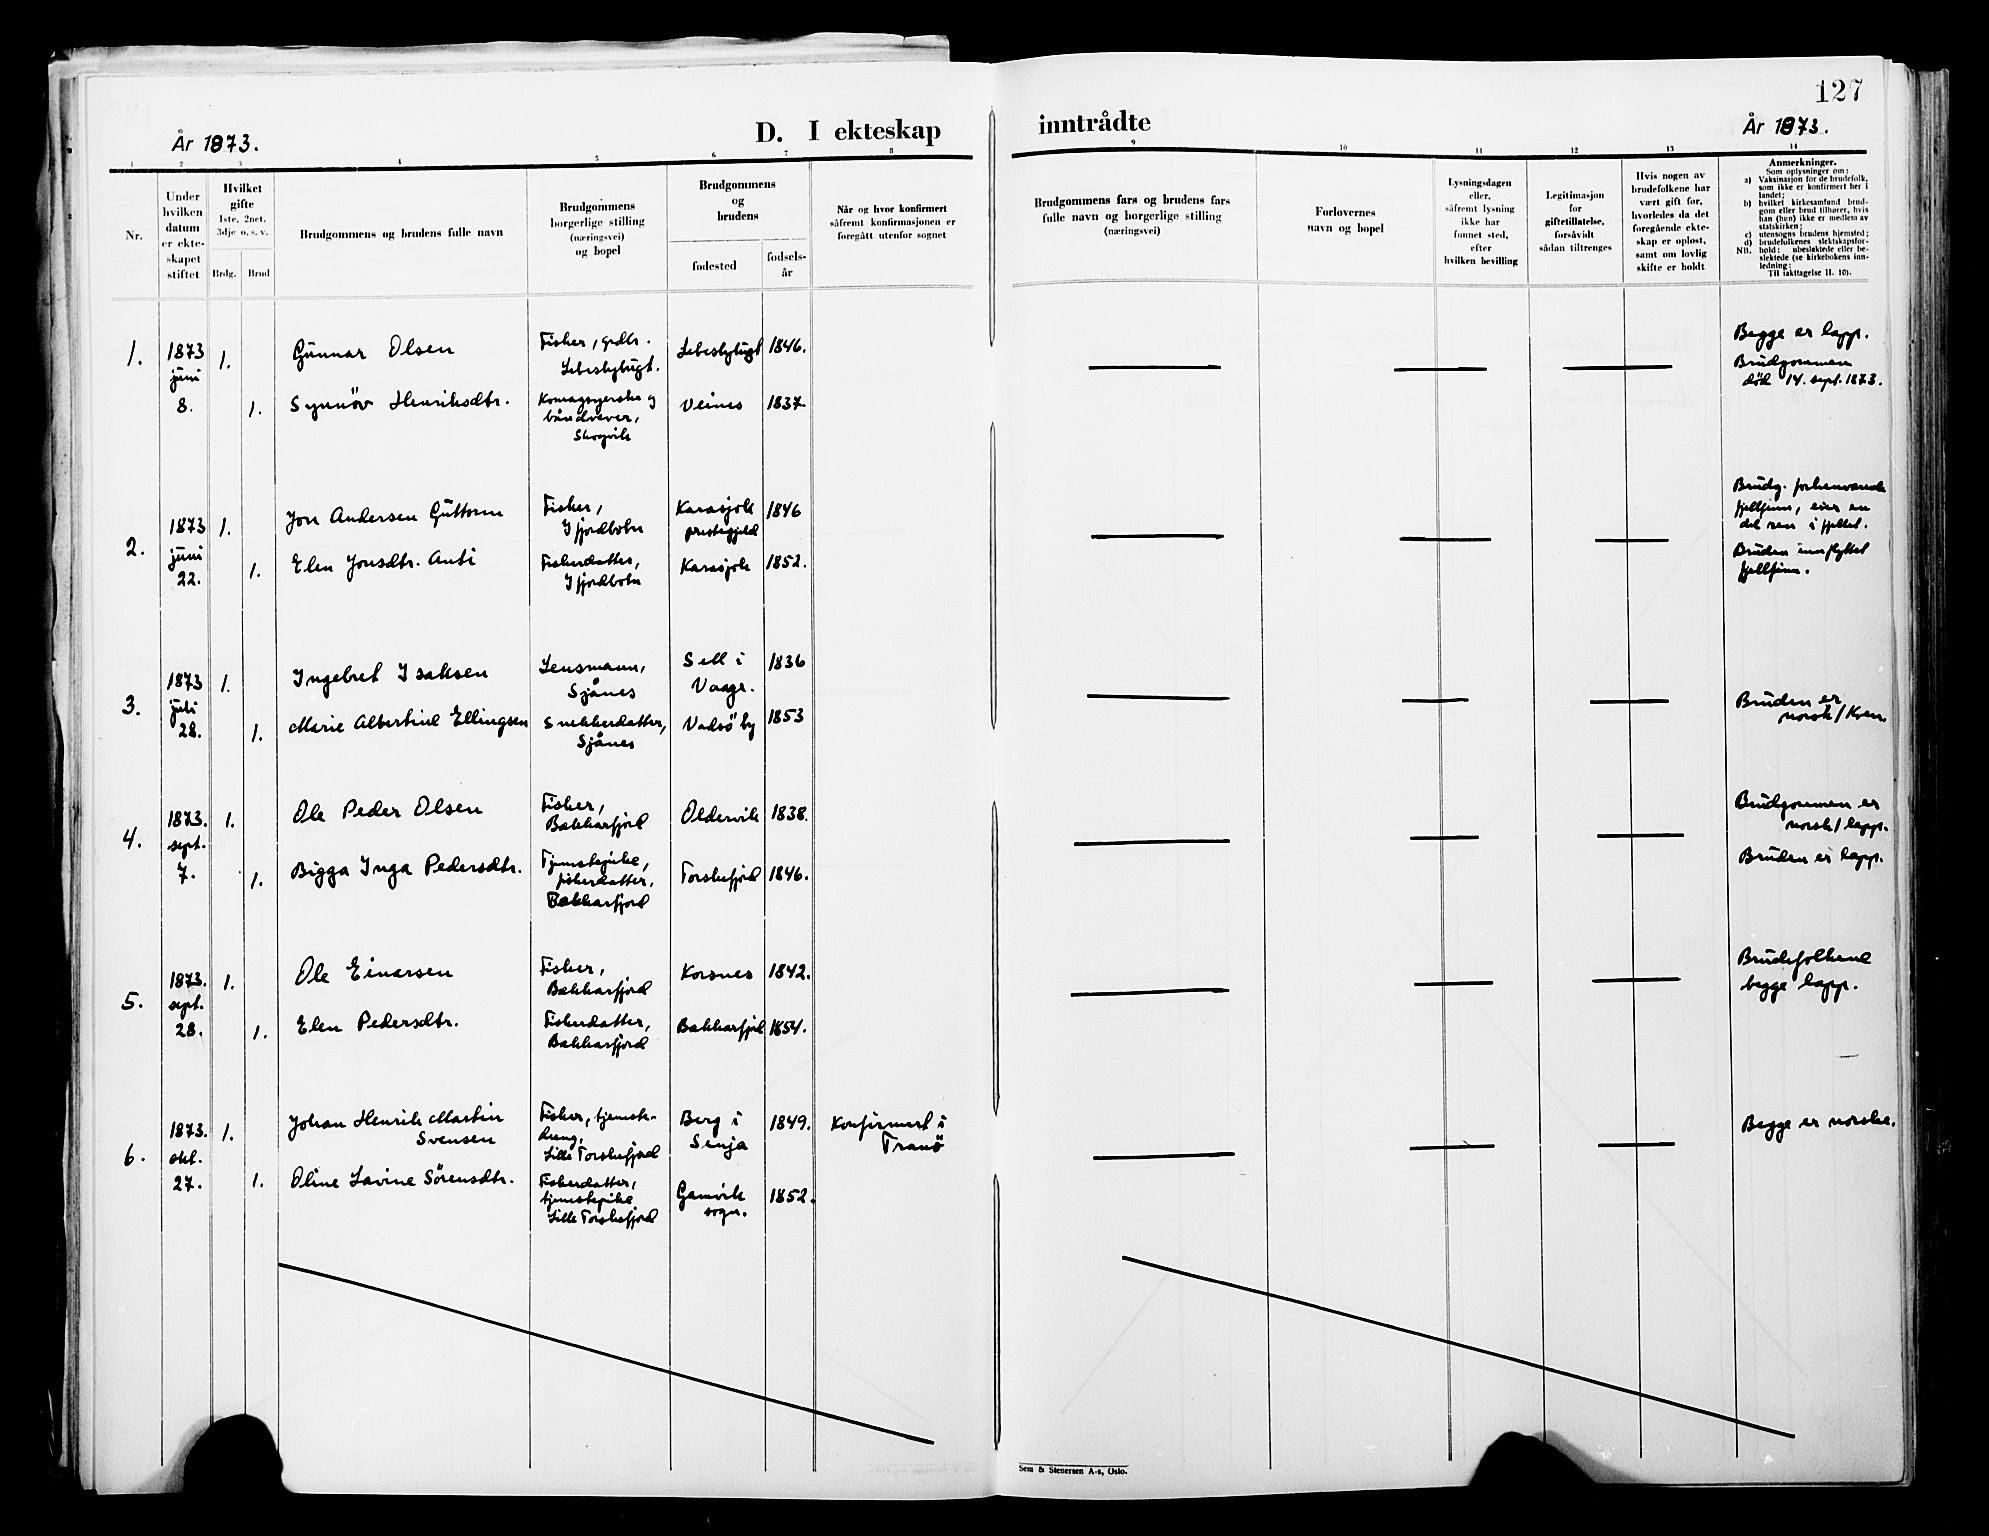 127
År 1873.
D. I ekteskap
inntrådte
År 1873.
1 2 3 4 5 6 7 8
9 10 11 12 13 14
Nr.
Under
hvilken
datum
er ekte-
skapet
stiftet
Hvilket
gifte
1ste, 2net.
3dje o. s. v.
Brdg. Brud
Brudgommens og brudens fulle navn
Brudgommens
borgerlige stilling
(næringsvei)
og bopel
Brudgommens
og
brudens
fødested
fødsels-
år
Når og hvor konfirmert
såfremt konfirmasjonen er
foregått utenfor sognet
Brudgommens fars og brudens fars
fulle navn og borgerlige stilling
(næringsvei)
Forlovernes
navn og bopel
Lysningsdagen
eller,
såfremt lysning
ikke har
funnet sted,
efter
hvilken bevilling
Legitimasjon
for
giftetillatelse,
forsåvidt
sådan tiltrenges
Hvis nogen av
brudefolkene har
vært gift før,
hvorledes da det
foregående ekte-
skap er opløst,
samt om lovlig
skifte er holdt
Anmerkninger.
Som oplysninger om:
a) Vaksinasjon for de brudefolk,
som ikke er konfirmert her i
landet;
b) hvilket kirkesamfund brud-
gom eller brud tilhører, hvis
han (hun) ikke er medlem av
statskirken;
c) utensogns brudens hjemsted;
d) brudefolkenes slektskapsfor-
hold: ubesløktede eller be-
slektede (se kirkebokens inn-
ledning;
NB.
Til iakttagelse II. 10).
1.
1873
juni
8.
1.
Gunnar Olsen
Fisher, grdbr.
Lebesbybugt.
Lebesbybugt
1846.
1.
Synnöv Henriksdtr.
Komagsyerske og
båndvever,
Skogvik
Veines
1837.
Begge er lapp.
Brudgommen
död 14. sept. 1873.
2.
1873
juni
22.
1.
Jon Andersen Guttorm
Fisher,
Ifjordbotn
Karasjok
prestegjeld
1846
1.
Elen Jonsdtr. Anti
Fiskerdatter,
Ifjordbotn
Karasjok
1852.
Brudg. forhenværende
fjellfinn, eier en
del ren i fjellet.
Bruden innflyttet
fjellfinn.
3.
1873
juli
28.
1.
Ingebret Isaksen
Lensmann,
Sjånes
Sell i
Vaage.
1836
1.
Marie Albertine Ellingsen
Snekkerdatter,
Sjånes
Vadsö by
1853
Bruden er
norsk/Kven
4.
1873.
sept.
7.
1.
Ole Peder Olsen
Fisher,
Bakkarfjord
Oldervik
1838.
1.
Bigga Inga Pedersdtr.
Tjenestepike,
fiskerdatter,
Bakkarfjord
Torskefjord
1846.
Brudgommen er
norsk/lapp.
Bruden er lapp.
5.
1873.
sept.
28.
1.
Ole Einarsen
Fisher,
Bakkarfjord
Korsnes
1842.
1.
Elen Pedersdtr.
Fiskerdatter,
Bakkarfjord
Bakkarfjord
1854.
Brudefolkene
begge lapp.
6.
1873.
okt.
27.
1.
Johan Henrik Martin
Svensen
Fisher, tjeneste-
dreng,
Lille Torskefjord
Berg i
Senja
1849.
Konfirmert i
Tranö
1.
Oline Lavine Sörensdtr.
Fiskerdatter,
tjenestepike
Lille Torskefjord
Gamvik
sogn.
1852.
Begge er norske.
Sem & Stenersen A-s, Oslo.